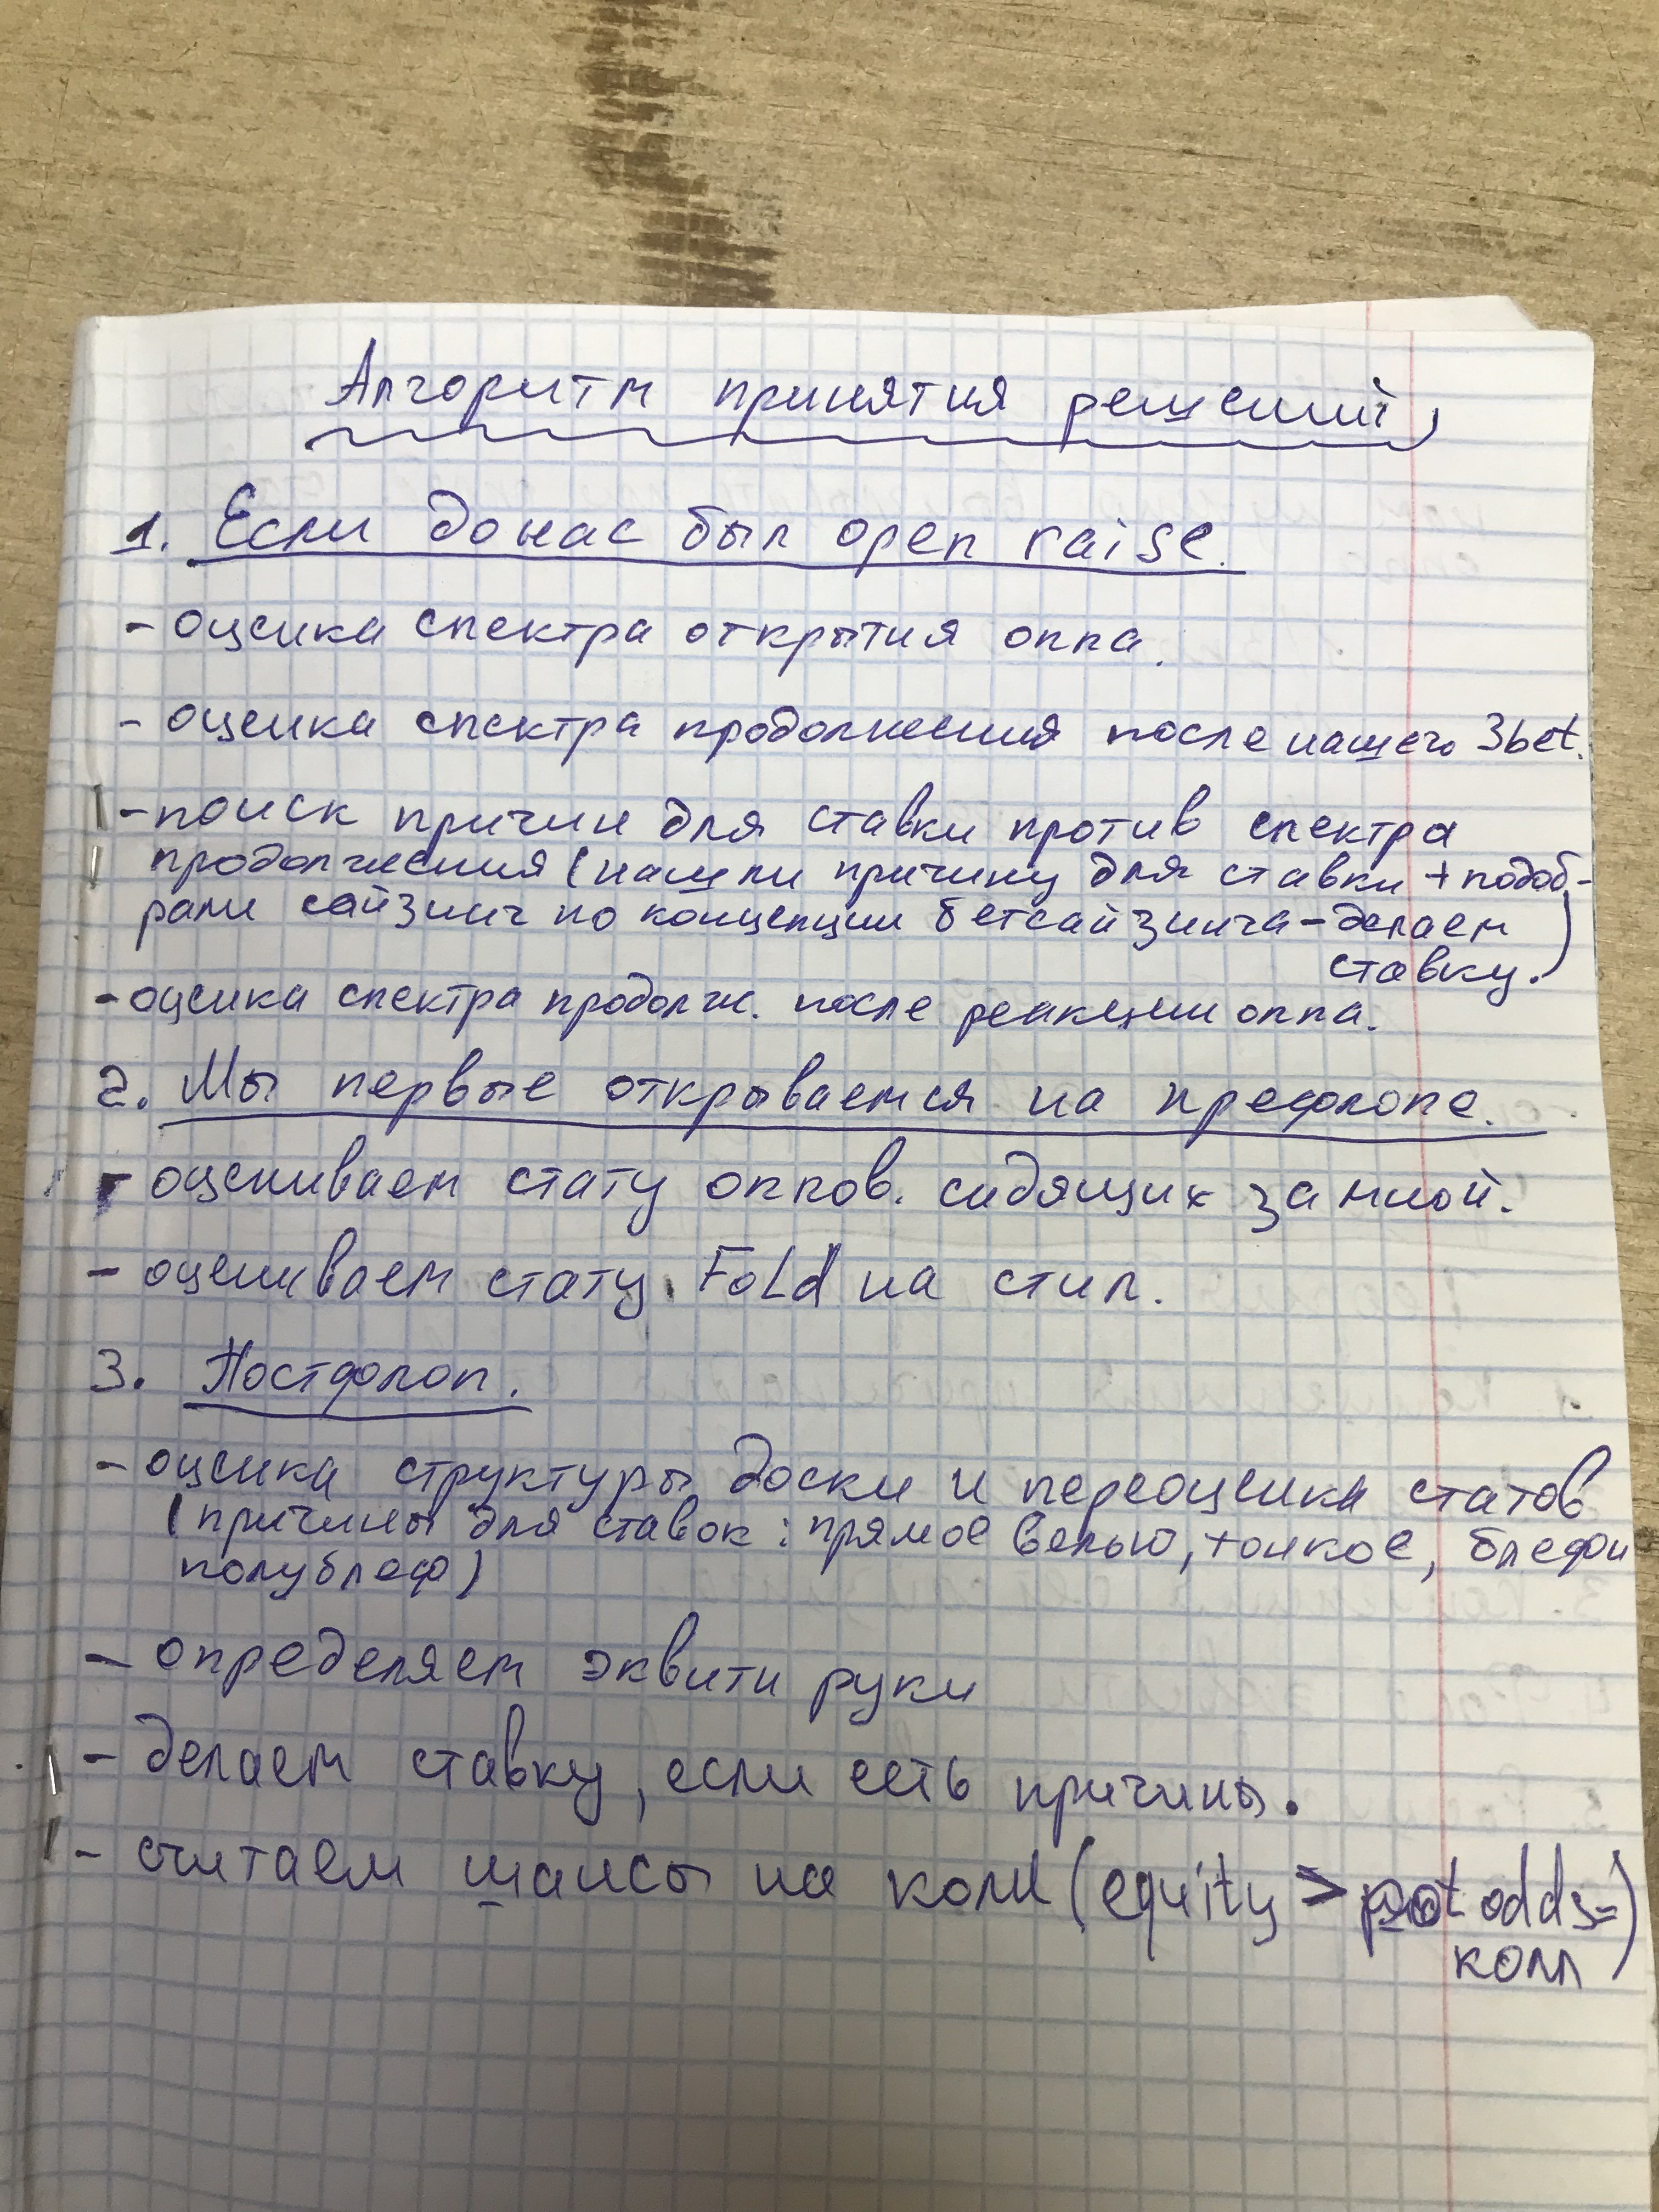 Алгоритм принятия решений
1. Если до нас был open raise.
- оценка спектра открытия оппа.
- оценка спектра продолжения после нашего 3bet.
- поиск причин для ставки против спектра
продолжения (нашли причину для ставки + подоб-
рали сайзинг по концепции бетсайзинга - делаем
ставку.)
- оценка спектра продолж. после реакции оппа.
2. Мы первые открываемся на префлопе.
- оцениваем стату оппов. сидящих за мной.
- оцениваем стату Fold на стил.
3. Постфлоп.
- оценка структуры доски и переоценка статов
(причины для ставок: прямое велью, тонкое, блефи
полублеф)
- определяем эквити руки
- делаем ставку, если есть причины.
- считаем шансы на колл (equity > pot odds =
колл)